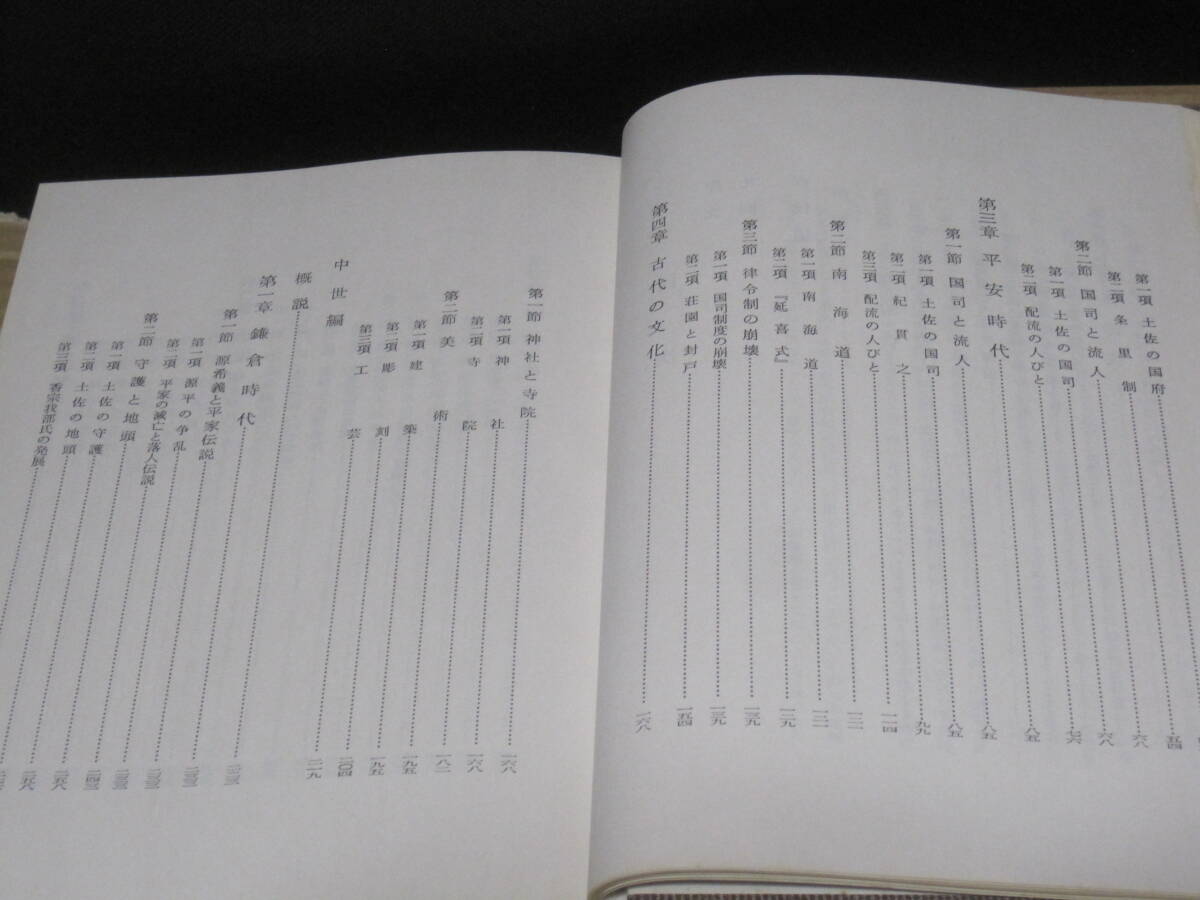 第一項 土佐の国府……五四
第二項 条里制……六八
第二節 国司と流人……六八
第一項 土佐の国司……七六
第二項 配流の人びと……八五
第三章 平安時代……八五
第一節 国司と流人……八五
第一項 土佐の国司……九九
第二項 紀貫之……一一四
第三項 配流の人びと
第二節 南海道
第一項 南海道
第二項 『延喜式』
第三節 律令制の崩壊……一三九
第一項 国司制度の崩壊……一三九
第二項 荘園と封戸……一五四
第四章 古代の文化……一六八
第一節 神社と寺院……一六八
第一項 神社……一六八
第二項 寺院……一八二
第二節 美術……一九五
第一項 建築……一九五
第二項 彫刻……二〇四
第三項 工芸……二一九
中世編
概説
第一章 鎌倉時代
第一節 源希義と平家伝説
第一項 源平の争乱
第二項 平家の滅亡と落人伝説
第二節 守護と地頭
第一項 土佐の守護
第二項 土佐の地頭
第三項 香宗我部氏の発展